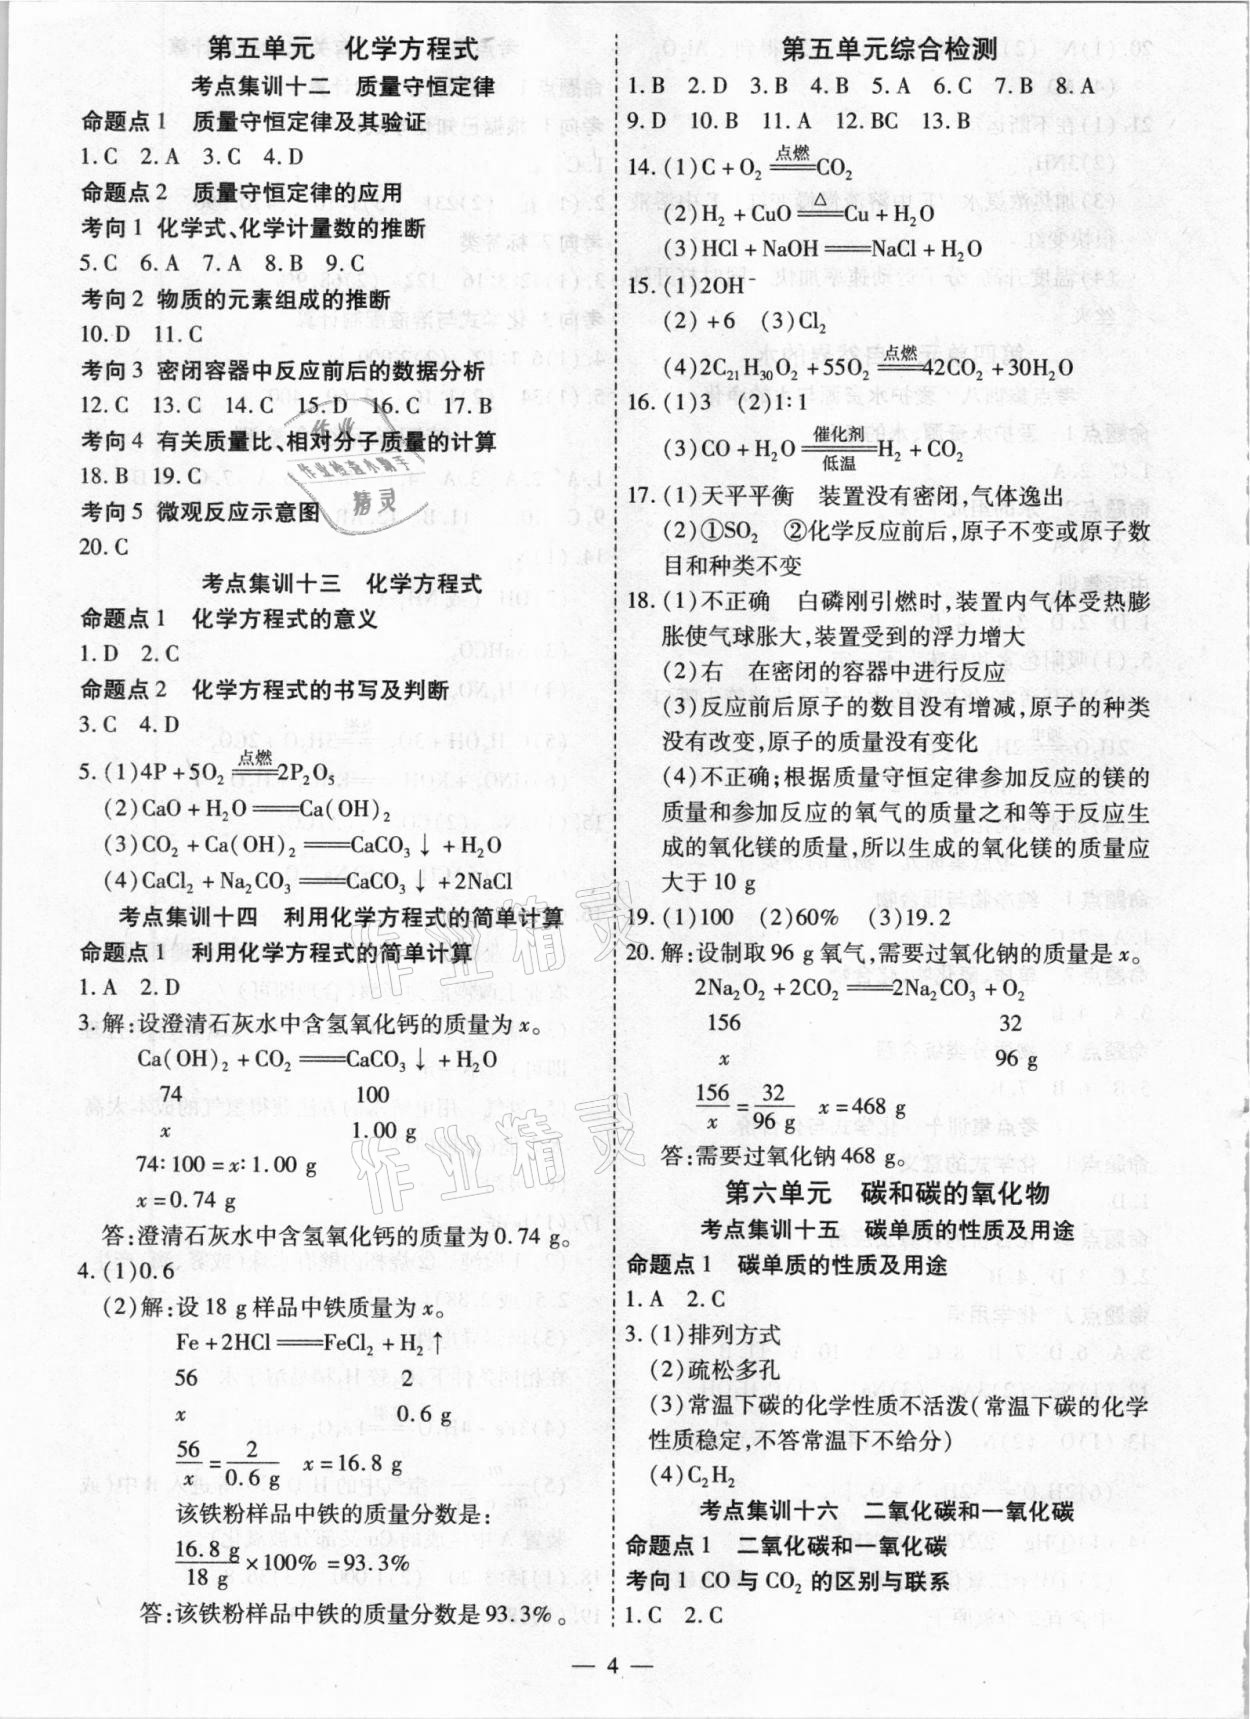 第五单元　化学方程式
考点集训十二　质量守恒定律
命题点1　质量守恒定律及其验证
1. C　2. A　3. C　4. D
命题点2　质量守恒定律的应用
考向1 化学式、化学计量数的推断
5. C　6. A　7. A　8. B　9. C
考向2 物质的元素组成的推断
10. D　11. C
考向3 密闭容器中反应前后的数据分析
12. C　13. C　14. C　15. D　16. C　17. B
考向4 有关质量比、相对分子质量的计算
18. B　19. C
考向5 微观反应示意图
20. C
考点集训十三　化学方程式
命题点1　化学方程式的意义
1. D　2. C
命题点2　化学方程式的书写及判断
3. C　4. D
5. (1)4P + 5O₂ ══点燃══ 2P₂O₅
(2)CaO + H₂O ══ Ca(OH)₂
(3)CO₂ + Ca(OH)₂ ══ CaCO₃↓ + H₂O
(4)CaCl₂ + Na₂CO₃ ══ CaCO₃↓ + 2NaCl
考点集训十四　利用化学方程式的简单计算
命题点1　利用化学方程式的简单计算
1. A　2. D
3. 解:设澄清石灰水中含氢氧化钙的质量为 x。
Ca(OH)₂ + CO₂ ══ CaCO₃↓ + H₂O
74　100
x　1.00 g
74∶100 = x∶1.00 g
x = 0.74 g
答:澄清石灰水中含氢氧化钙的质量为0.74 g。
4. (1)0.6
(2)解:设18 g样品中铁质量为 x。
Fe + 2HCl ══ FeCl₂ + H₂↑
56　2
x　0.6 g
56/x = 2/0.6 g　x = 16.8 g
该铁粉样品中铁的质量分数是:
16.8 g/18 g × 100% = 93.3%
答:该铁粉样品中铁的质量分数是93.3%。
第五单元综合检测
1. B　2. D　3. B　4. B　5. A　6. C　7. B　8. A
9. D　10. B　11. A　12. BC　13. B
14. (1)C + O₂ ══点燃══ CO₂
(2)H₂ + CuO ══△══ Cu + H₂O
(3)HCl + NaOH ══ NaCl + H₂O
15. (1)2OH⁻
(2) +6　(3)Cl₂
(4)2C₂₁H₃₀O₂ + 55O₂ ══点燃══ 42CO₂ + 30H₂O
16. (1)3　(2)1∶1
(3)CO + H₂O ══催化剂/低温══ H₂ + CO₂
17. (1)天平平衡　装置没有密闭,气体逸出
(2)①SO₂　②化学反应前后,原子不变或原子数
目和种类不变
18. (1)不正确　白磷刚引燃时,装置内气体受热膨
胀使气球胀大,装置受到的浮力增大
(2)右　在密闭的容器中进行反应
(3)反应前后原子的数目没有增减,原子的种类
没有改变,原子的质量没有变化
(4)不正确;根据质量守恒定律参加反应的镁的
质量和参加反应的氧气的质量之和等于反应生
成的氧化镁的质量,所以生成的氧化镁的质量应
大于10 g
19. (1)100　(2)60%　(3)19.2
20. 解:设制取96 g氧气,需要过氧化钠的质量是 x。
2Na₂O₂ + 2CO₂ ══ 2Na₂CO₃ + O₂
156　32
x　96 g
156/x = 32/96 g　x = 468 g
答:需要过氧化钠468 g。
第六单元　碳和碳的氧化物
考点集训十五　碳单质的性质及用途
命题点1　碳单质的性质及用途
1. A　2. C
3. (1)排列方式
(2)疏松多孔
(3)常温下碳的化学性质不活泼(常温下碳的化学
性质稳定,不答常温下不给分)
(4)C₂H₂
考点集训十六　二氧化碳和一氧化碳
命题点1　二氧化碳和一氧化碳
考向1 CO与CO₂ 的区别与联系
1. C　2. C
— 4 —
作业
作业检查小助手
精灵
作业精灵
作业精灵